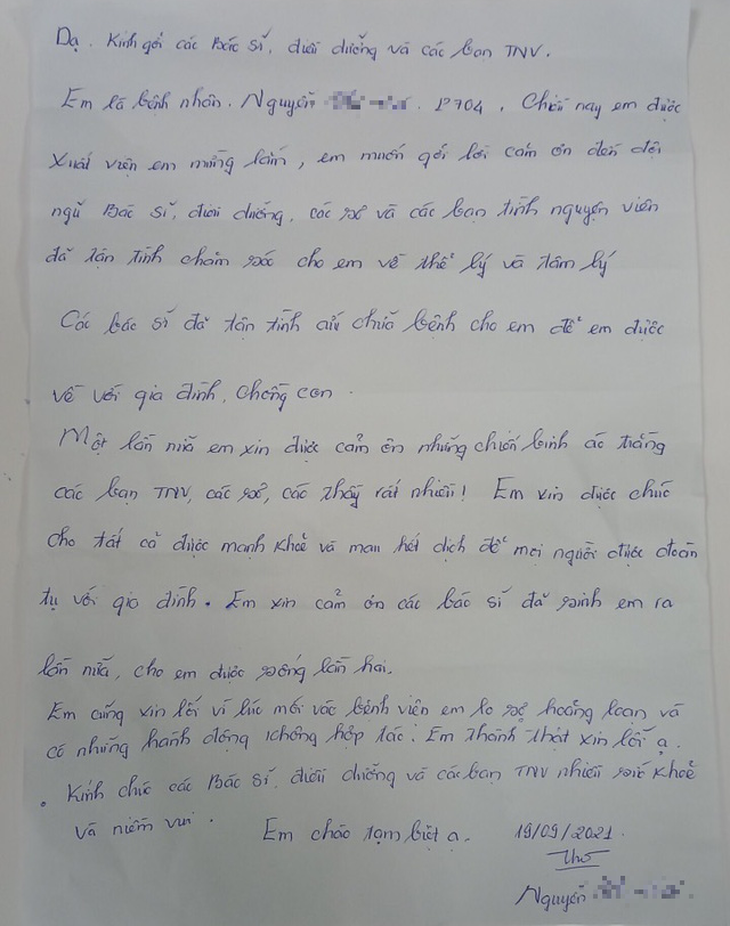 Dạ. Kính gởi các Bác sĩ, điều dưỡng và các bạn TNV.
Em là bệnh nhân. Nguyễn . P704. Chiều nay em được
xuất viện em mừng lắm, em muốn gởi lời cám ơn đến đội
ngũ Bác sĩ, điều dưỡng, các sơ và các bạn tình nguyện viên
đã tận tình chăm sóc cho em về thể lý và tâm lý
Các bác sĩ đã tận tình cứu chữa bệnh cho em để em được
về với gia đình, chồng con.
Một lần nữa em xin được cảm ơn những chiến binh áo trắng
các bạn TNV, các sơ, các thầy rất nhiều! Em xin được chúc
cho tất cả được mạnh khoẻ và mau hết dịch để mọi người được đoàn
tụ với gia đình. Em xin cảm ơn các bác sĩ đã sinh em ra
lần nữa, cho em được sống lần hai.
Em cũng xin lỗi vì lúc mới vác bệnh viện em lo sợ hoảng loạn và
có những hành động không hợp tác. Em thành thật xin lỗi ạ.
Kính chúc các Bác sĩ, điều dưỡng và các bạn TNV nhiều sức khoẻ
và niềm vui.
Em chào tạm biệt ạ.
19/09/2021.
Nguyễn